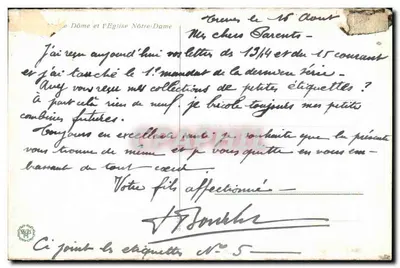 Dâme et l'Eglise Nôtre-Dame
Treves le 16 Aout
Mes chers Parents -
J'ai reçu aujourd'hui vos lettres des 13/14 et du 15 courant
et j'ai touché le 1er mandat de la dernière série -
Avez vous reçu mes collections de petites étiquettes ?
A part cela rien de neuf je bricole toujours mes petites
combines futures.
Toujours en excellente santé je souhaite que la présente
vous trouve de même et je vous quitte en vous em-
brassant de tout coeur.
Votre fils affectionné -
Ci joint les etiquettes No 5 -